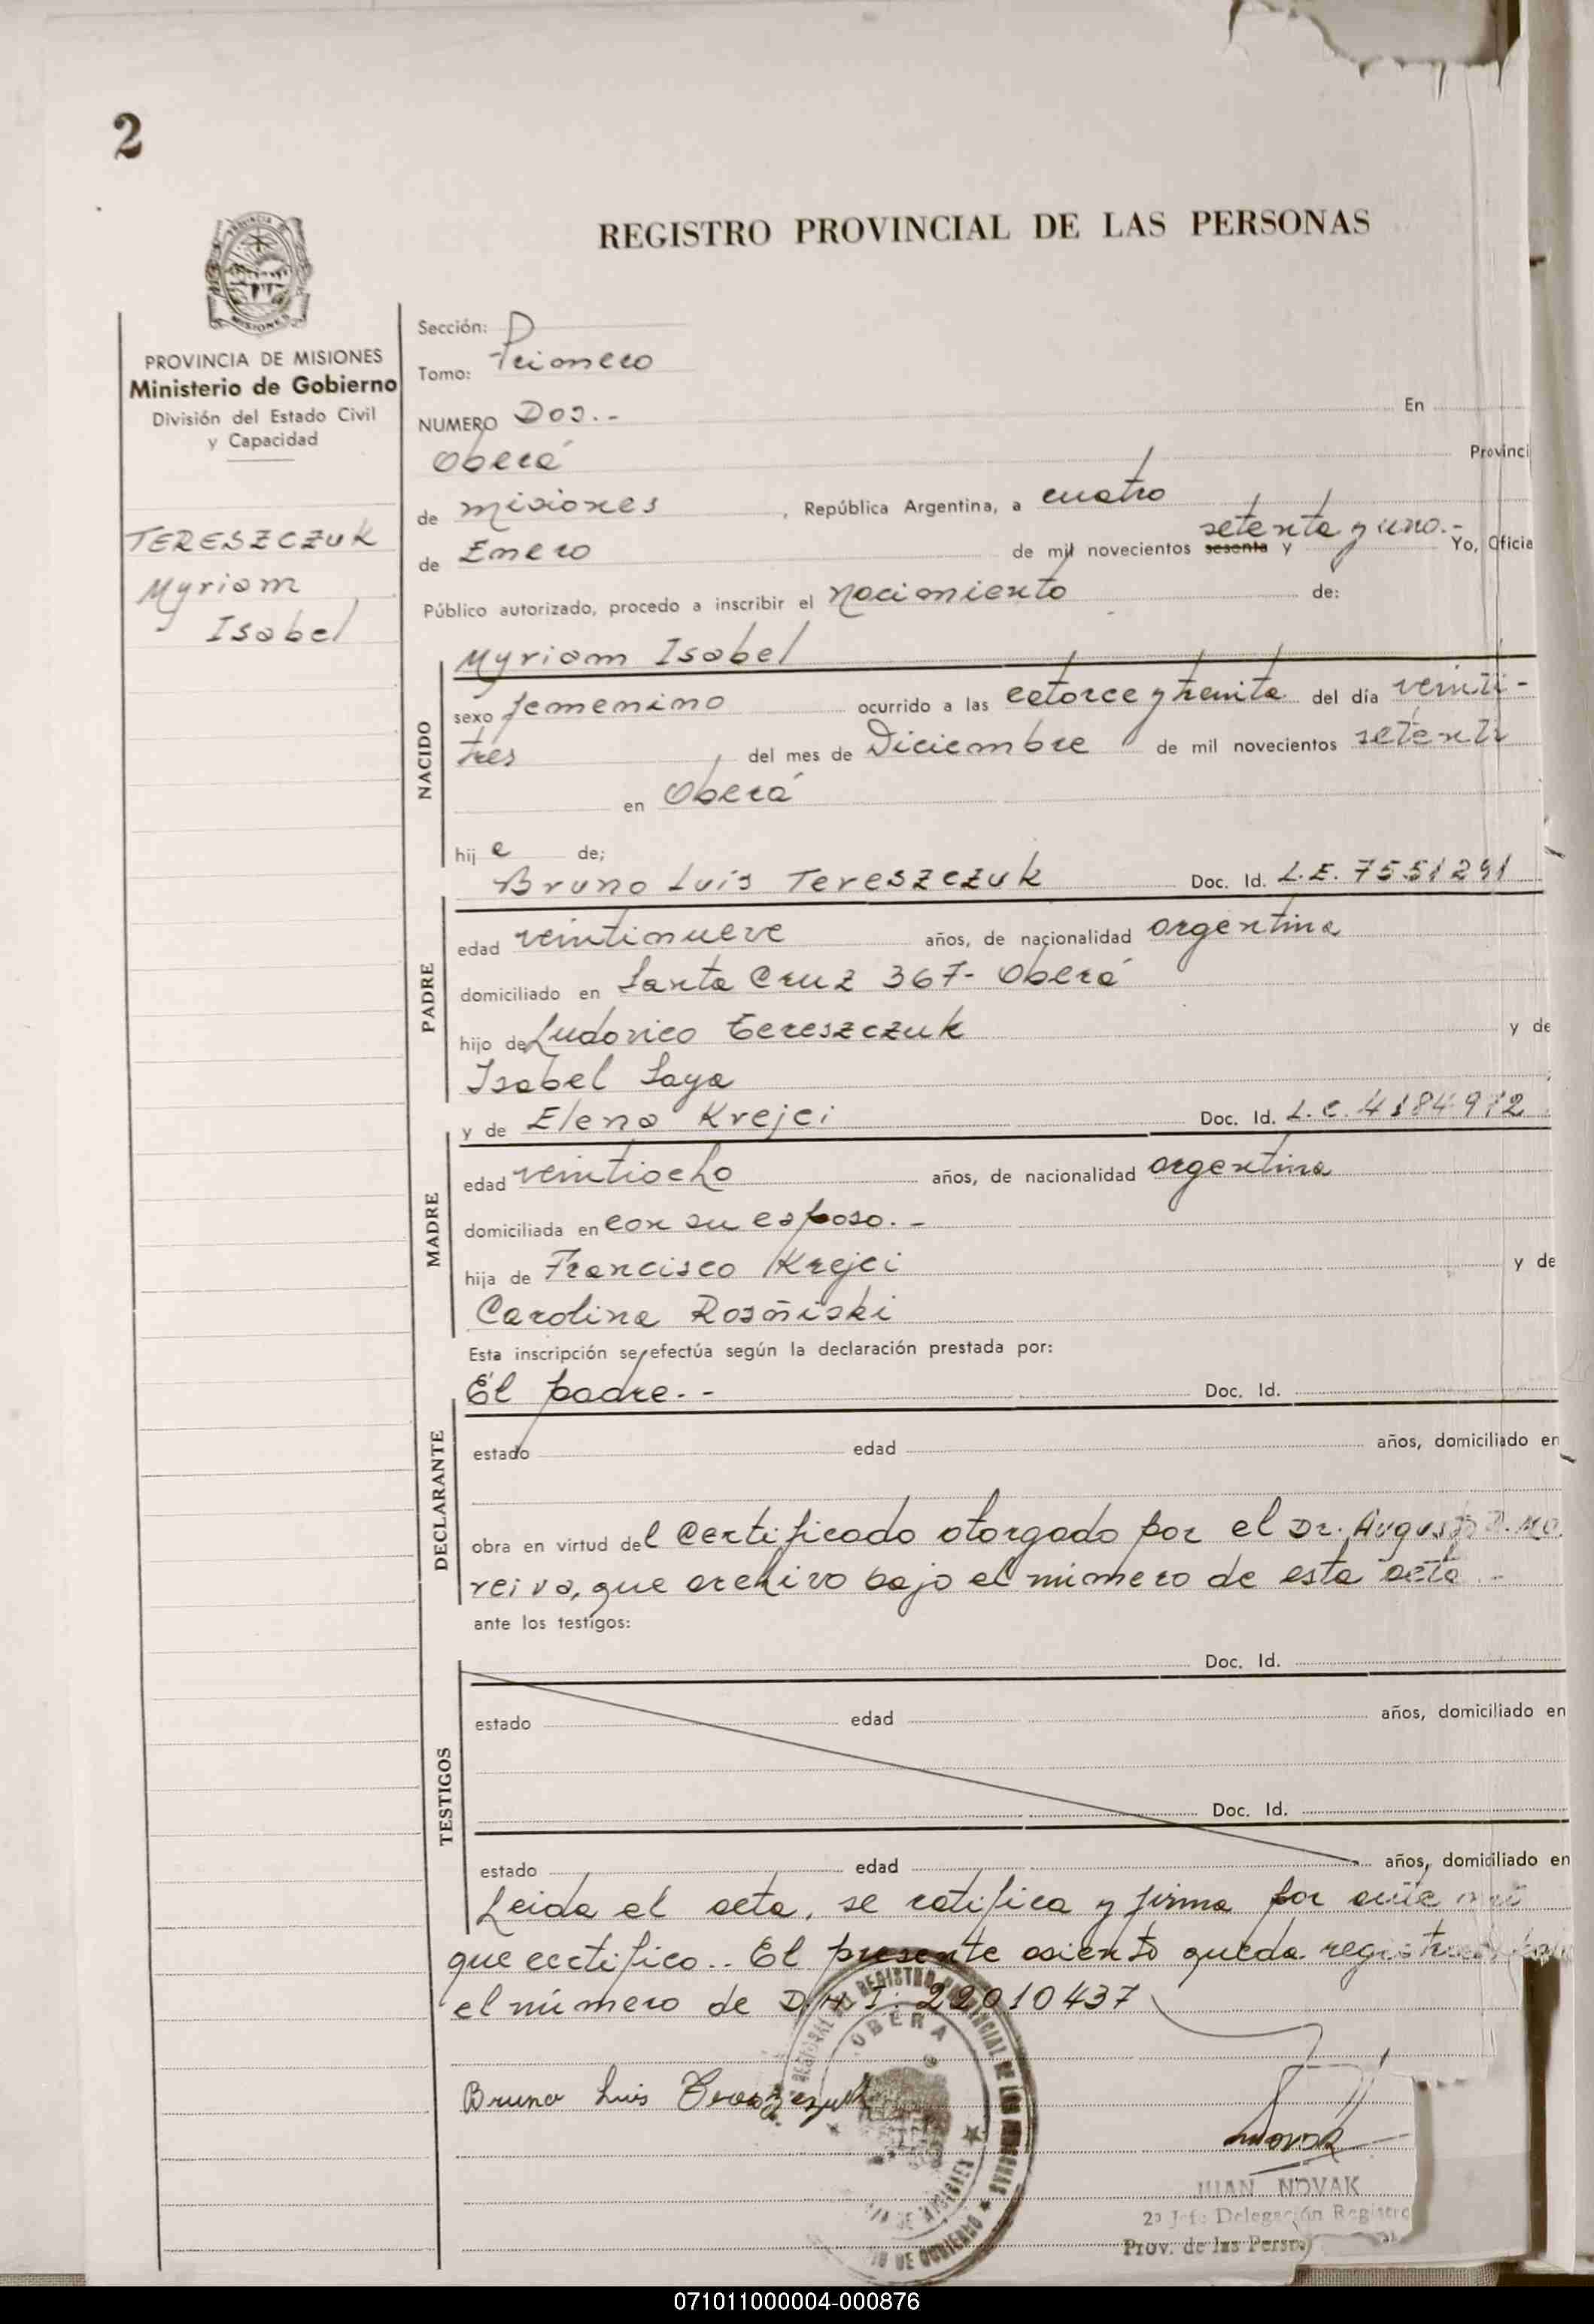 2
REGISTRO PROVINCIAL DE LAS PERSONAS
PROVINCIA DE MISIONES
Ministerio de Gobierno
División del Estado Civil
y Capacidad
TERESZCZUK
Myriam
Isabel
Sección: D
Tomo: Primero
NUMERO Dos.- En
Oberá Provinci
de misiones, República Argentina, a cuatro
de Enero de mil novecientos sesenta y setenta y uno.- Yo, Oficia
Público autorizado, procedo a inscribir el nacimiento de:
NACIDO
Myriam Isabel
sexo femenino ocurrido a las catorce y treinta del día veinti-
tres del mes de Diciembre de mil novecientos setenta
en Oberá
hij a de;
PADRE
Bruno Luis Tereszczuk Doc. Id. L.E. 7551291
edad veintinueve años, de nacionalidad argentina
domiciliado en Santa Cruz 367- Oberá
hijo de Ludovico Tereszczuk y de
Isabel Saya
MADRE
y de Elena Krejci Doc. Id. L.C. 4184972
edad veintiocho años, de nacionalidad argentina
domiciliada en con su esposo.-
hija de Francisco Krejci y de
Carolina Rosñiski
Esta inscripción se efectúa según la declaración prestada por:
DECLARANTE
El padre.- Doc. Id.
estado edad años, domiciliado en
obra en virtud del certificado otorgado por el Dr. Augusto D. Mo
reiva, que archivo bajo el número de esta acta.-
ante los testigos:
TESTIGOS
Doc. Id.
estado edad años, domiciliado en
Doc. Id.
estado edad años, domiciliado en
Leida el acta, se ratifica y firma por ante mi
que certifico.. El presente asiento queda registrado bajo
el número de D.N.I. 22010437
Bruno Luis Tereszczuk
OBERA
Novak
JUAN NOVAK
2º Jefe Delegación Registro
Prov. de las Perso
071011000004-000876